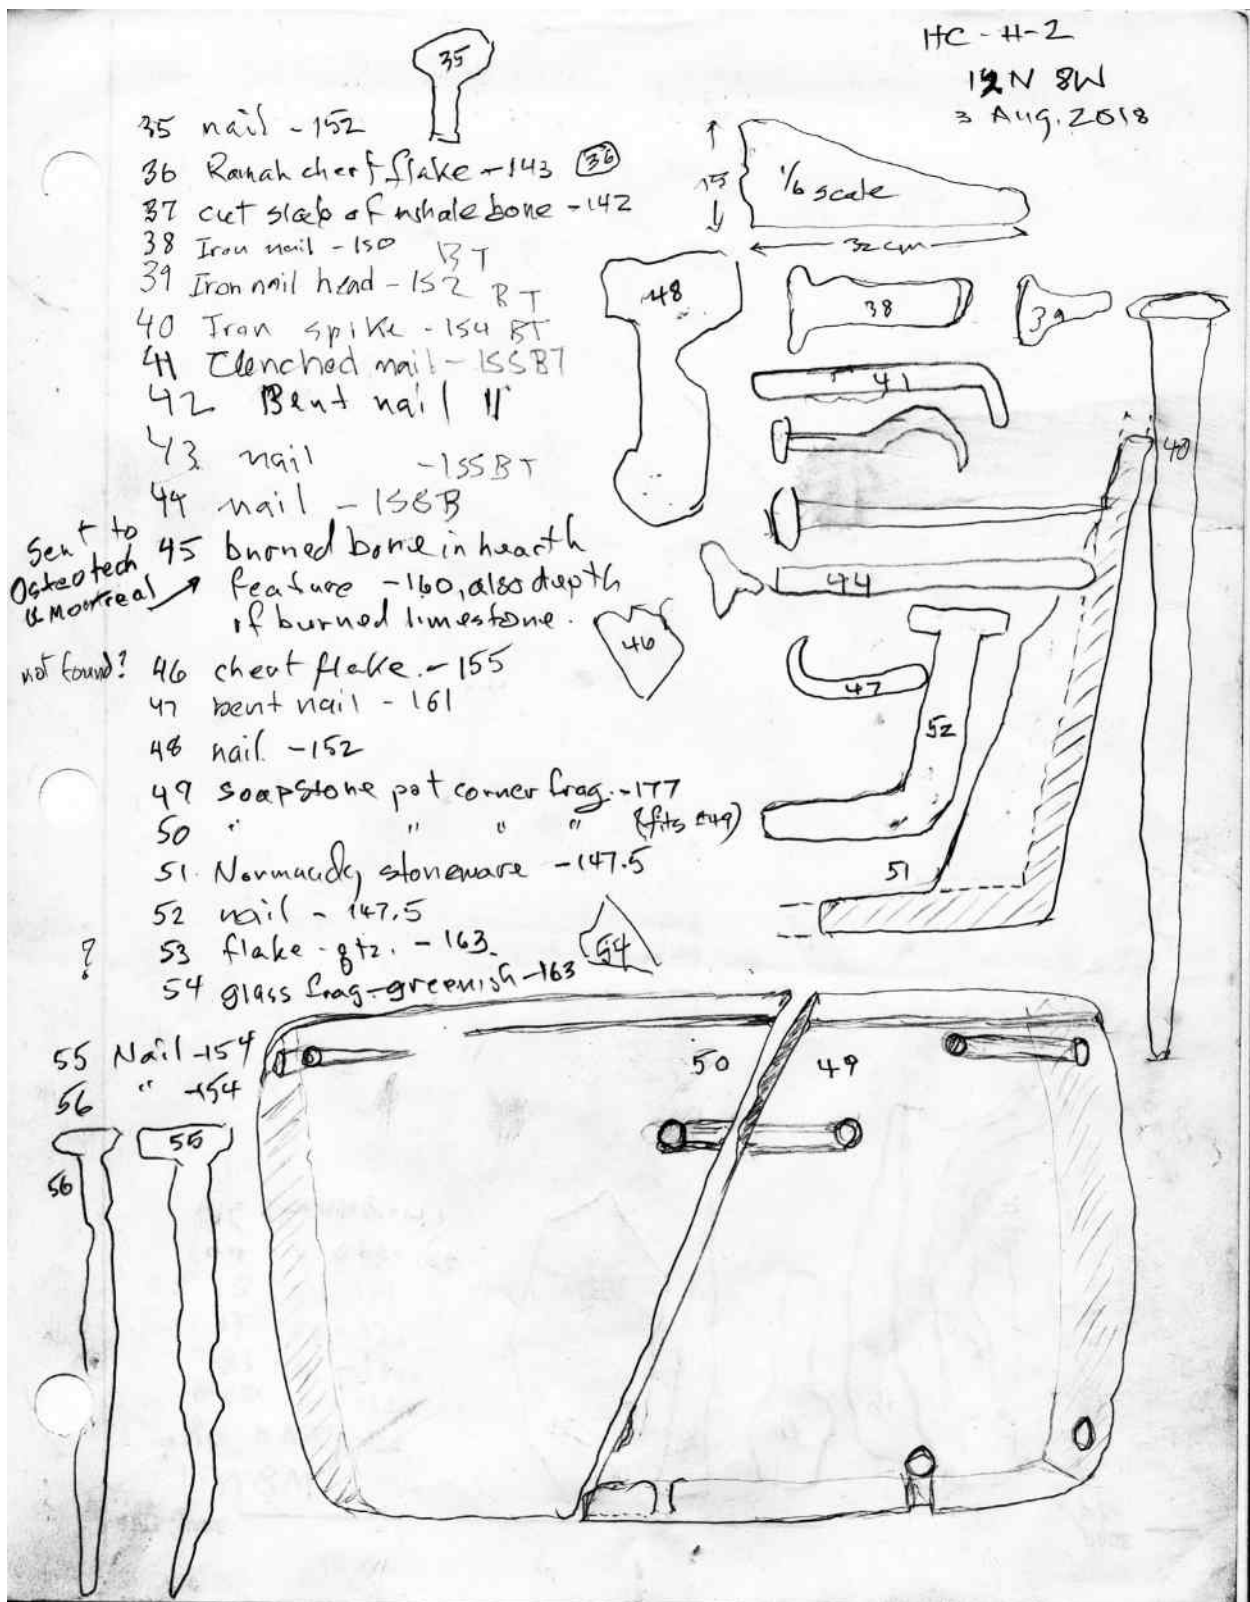 HC-H-2
12N 8W
3 Aug. 2018
35
35 nail - 152
36 Ramah chert flake - 143 36
37 cut slab of whale bone - 142
38 Iron nail - 150 BT
39 Iron nail head - 152 BT
40 Iron spike - 154 BT
41 Clenched nail - 155BT
42 Bent nail "
43 nail - 155BT
44 nail - 155B
Sent to
Osteotech
Montreal
45 burned bone in hearth
feature - 160, also depth
of burned limestone.
not found? 46 chert flake. - 155
47 bent nail - 161
48 nail. - 152
49 soapstone pot corner frag. - 177
50 " " " " (fits #49)
51. Normandy stoneware - 147.5
52 nail - 147.5
? 53 flake - qtz. - 163.
54 glass frag - greenish - 163
55 Nail - 154
56 " - 154
1/6 scale
32 cm
48
38
39
41
40
44
46
47
52
51
54
50
49
55
56